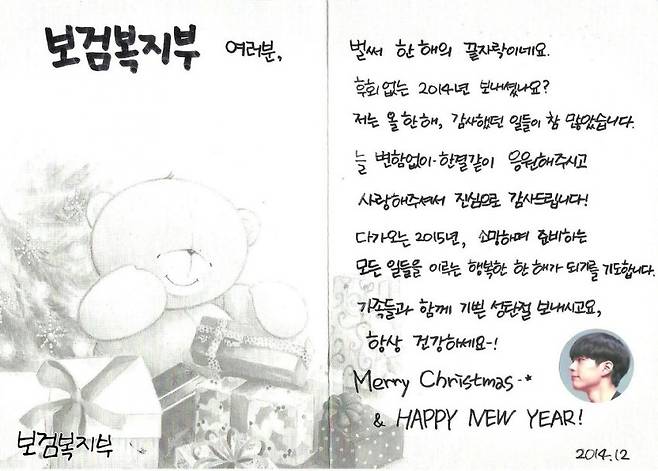 보검복지부 여러분,
벌써 한 해의 끝자락이네요.
후회 없는 2014년 보내셨나요?
저는 올 한해, 감사했던 일들이 참 많았습니다.
늘 변함없이 한결같이 응원해주시고
사랑해주셔서 진심으로 감사드립니다!
다가오는 2015년, 소망하며 준비하는
모든 일들을 이루는 행복한 한 해가 되기를 기도합니다.
가족들과 함께 기쁜 성탄절 보내시고요,
항상 건강하세요~!
Merry Christmas~*
& HAPPY NEW YEAR!
보검복지부
2014.12